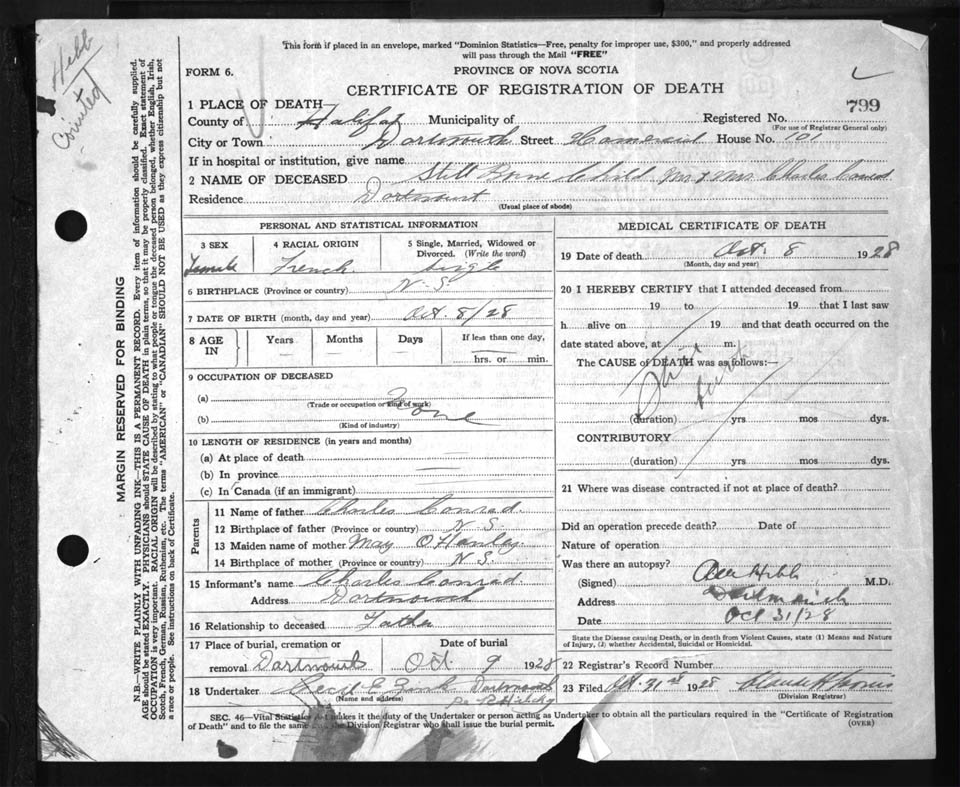 Hebb
This form if placed in an envelope, marked "Dominion Statistics—Free, penalty for improper use, $300," and properly addressed
will pass through the Mail "FREE"
FORM 6.
PROVINCE OF NOVA SCOTIA
CERTIFICATE OF REGISTRATION OF DEATH
799
1 PLACE OF DEATH
County of Halifax Municipality of Registered No.
(For use of Registrar General only)
City or Town Dartmouth Street Comercial House No. 101
If in hospital or institution, give name
2 NAME OF DECEASED Still Borne Child Mr & Mrs Charles Conrad
Residence Dartmouth
(Usual place of abode)
PERSONAL AND STATISTICAL INFORMATION
3 SEX 4 RACIAL ORIGIN 5 Single, Married, Widowed or
Divorced. (Write the word)
Female French single
6 BIRTHPLACE (Province or country) N S
7 DATE OF BIRTH (month, day and year) Oct. 8/28
8 AGE IN Years Months Days If less than one day,
hrs. or min.
9 OCCUPATION OF DECEASED
(a) None
(Trade or occupation or kind of work)
(b)
(Kind of industry)
10 LENGTH OF RESIDENCE (in years and months)
(a) At place of death
(b) In province
(c) In Canada (if an immigrant)
Parents
11 Name of father Charles Conrad.
12 Birthplace of father (Province or country) N. S.
13 Maiden name of mother May O Hanley
14 Birthplace of mother (Province or country) N S.
15 Informant's name Charles Conrad.
Address Dartmouth
16 Relationship to deceased Father
17 Place of burial, cremation or Date of burial
removal Dartmouth Oct 9 1928
18 Undertaker Dartmouth
(Name and address)
MEDICAL CERTIFICATE OF DEATH
19 Date of death Oct. 8 1928
(Month, day and year)
20 I HEREBY CERTIFY that I attended deceased from
19 to 19 that I last saw
h alive on 19 and that death occurred on the
date stated above, at m.
The CAUSE of DEATH was as follows:—
(duration) yrs mos dys.
CONTRIBUTORY
(duration) yrs mos dys.
21 Where was disease contracted if not at place of death?
Did an operation precede death? Date of
Nature of operation
Was there an autopsy?
(Signed) Hebb M.D.
Address Dartmouth
Date Oct 31/28
State the Disease causing Death, or in death from Violent Causes, state (1) Means and Nature
of Injury, (2) whether Accidental, Suicidal or Homicidal.
22 Registrar's Record Number
23 Filed Oct. 31st 1928
(Division Registrar)
SEC. 46—Vital Statistics Act makes it the duty of the Undertaker or person acting as Undertaker to obtain all the particulars required in the "Certificate of Registration
of Death" and to file the same with the Division Registrar who shall issue the burial permit.
(OVER)
MARGIN RESERVED FOR BINDING
N.B.—WRITE PLAINLY WITH UNFADING INK—THIS IS A PERMANENT RECORD. Every item of information should be carefully supplied.
AGE should be stated EXACTLY. PHYSICIANS should STATE CAUSE OF DEATH in plain terms, so that it may be properly classified. Exact statement of
OCCUPATION is very important. RACIAL ORIGIN will be described by stating to what people or tongue the deceased person belonged, whether English, Irish,
Scotch, French, German, Russian, Ruthenian, etc. The terms "AMERICAN" or "CANADIAN" SHOULD NOT BE USED as they express citizenship but not
a race or people. See instructions on back of Certificate.